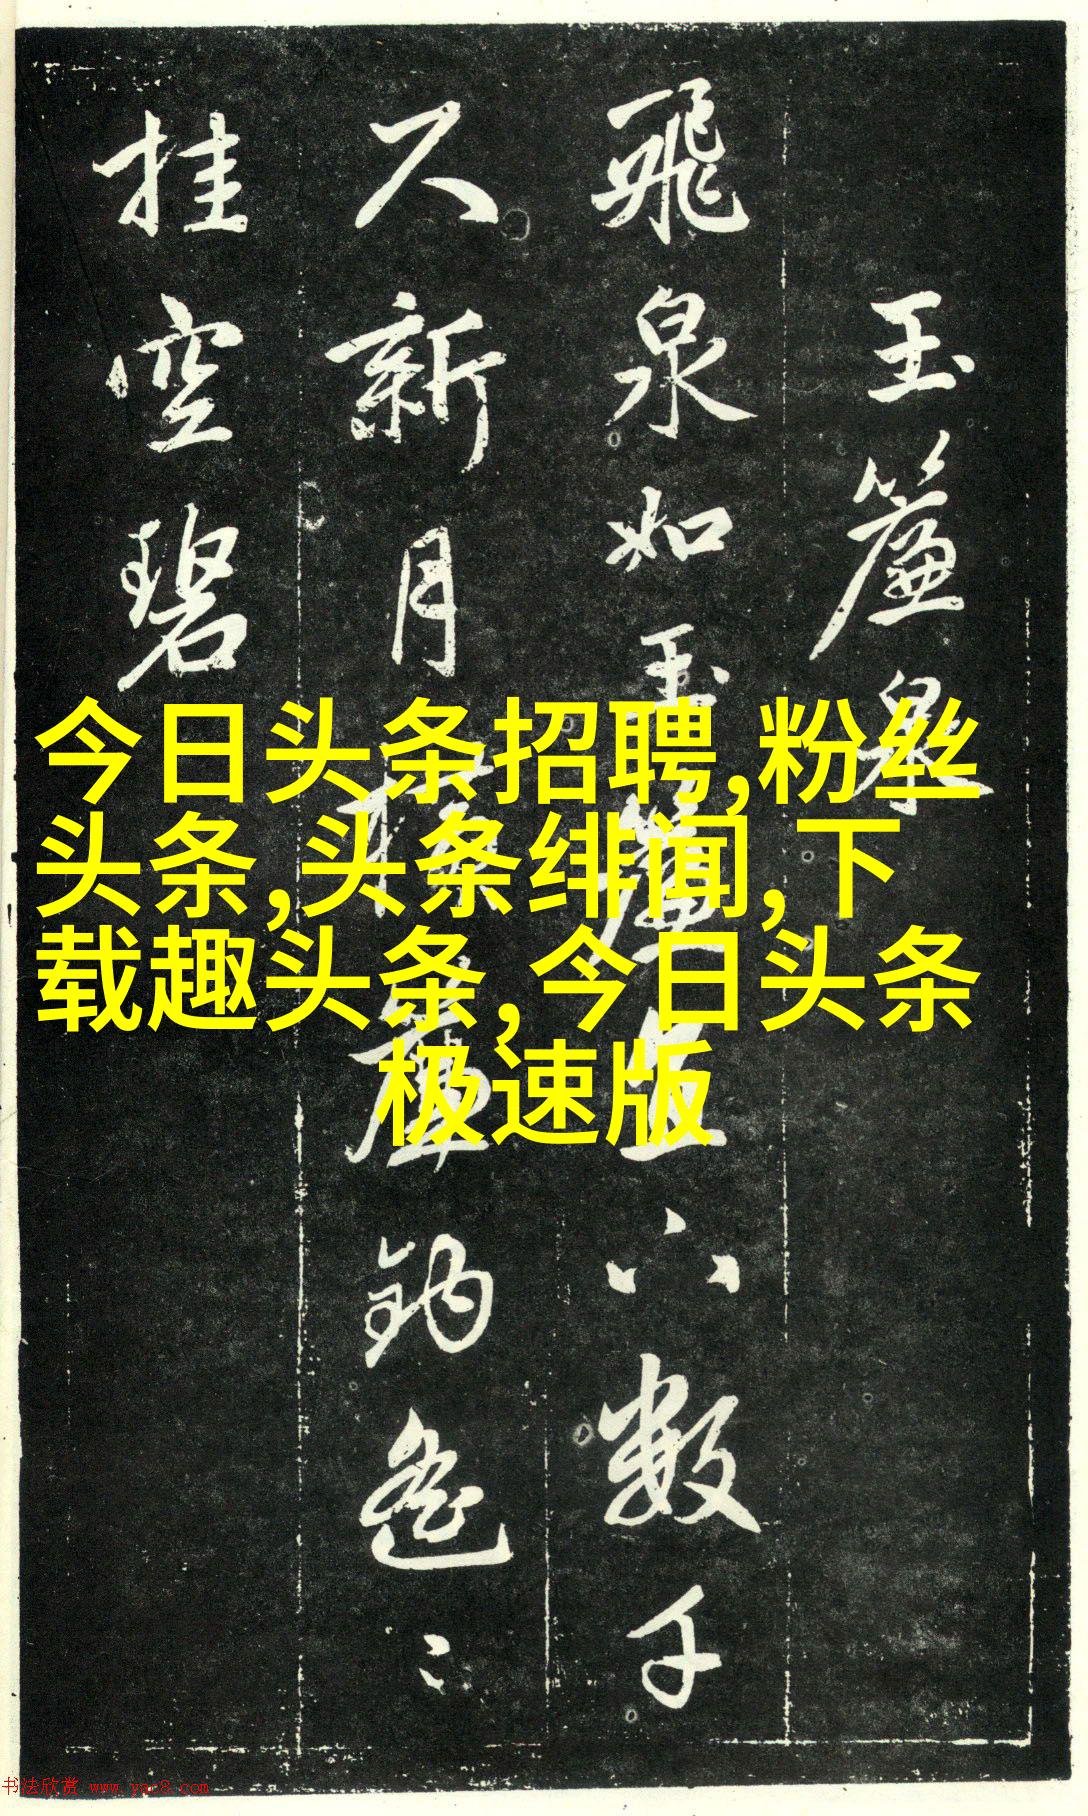 玉簾泉
飛泉如玉簾直下數千
尺新月橫簾鈎遙々
挂空碧
今日头条招聘,粉丝
头条,头条绯闻,下
载趣头条, 今日头条
极速版
书法欣赏 www.yac8.com